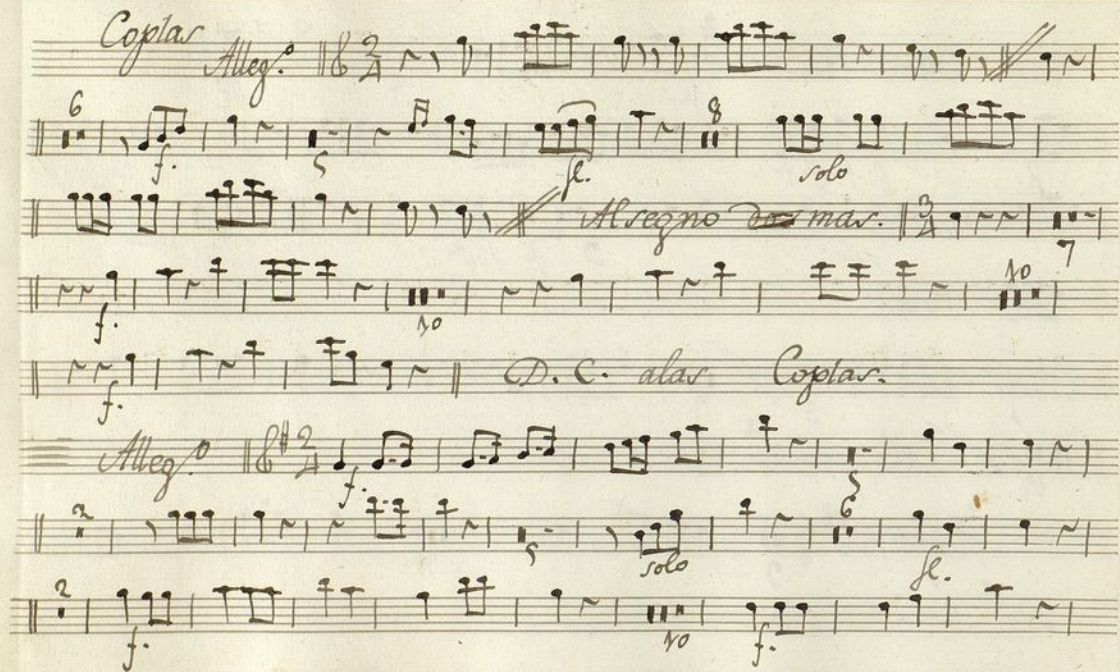 Coplas
Alleg.º 2 4
6 f. 5 fe. 8 solo
Al segno dos mas. 3 4 7
f. 10 10
f. D. C. alas Coplas.
Alleg.º 2 4 f. 5
2 5 solo 6 fe.
2 f. 10 f.